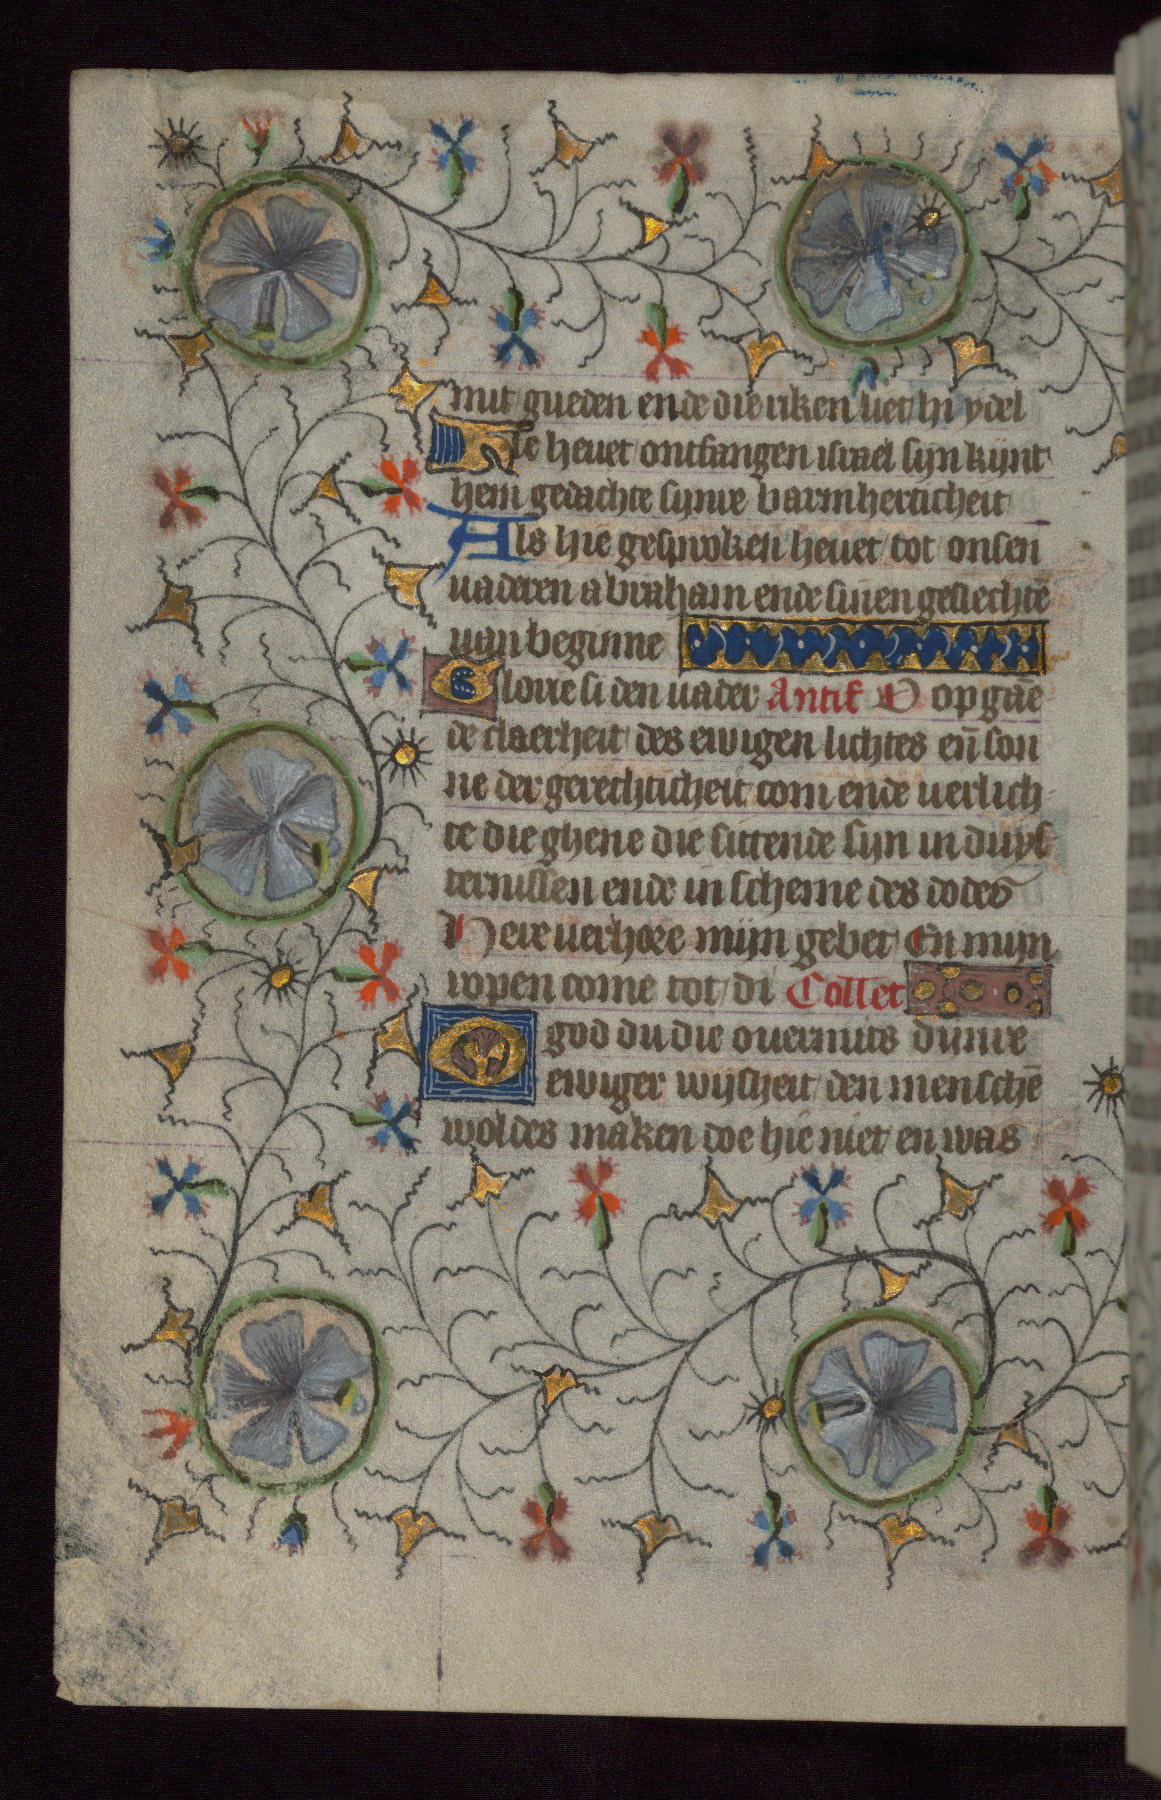 mit gueden ende die riken liet hi ydel
He heuet ontfangen israel sijn kijnt
hem gedachte sijnre barmherticheit
Als hie gesproken heuet tot onsen
uaderen abraham ende sinen geslechtē
uan beginne
Glorie si den uader Antif O opgāē
de claerheit des ewigen lichtes eñ son
ne der gerechticheit com ende uerlich
te die ghene die sittende sijn in duys
ternissen ende in scheme des dodes
Here uerhore mijn gebet En mijn
ropen come tot di Collet
O god du die ouermits dijnre
ewiger wijsheit den menschē
woldes maken doe hie niet en was